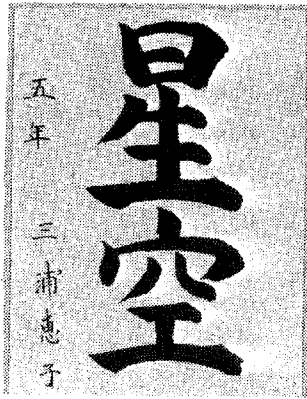 星空
五年 三浦恵子